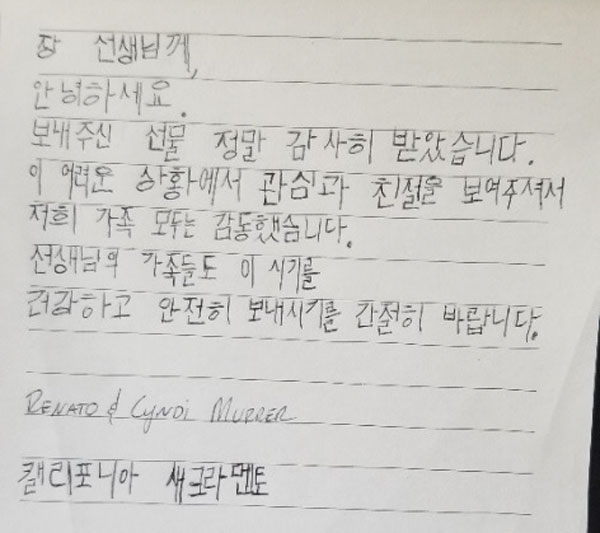 장 선생님께,
안녕하세요.
보내주신 선물 정말 감사히 받았습니다.
이 어려운 상황에서 관심과 친절을 보여주셔서
저희 가족 모두는 감동했습니다.
선생님의 가족들도 이 시기를
건강하고 안전히 보내시기를 간절히 바랍니다.
RENATO & CYNDI MURRER
캘리포니아 새크라멘토